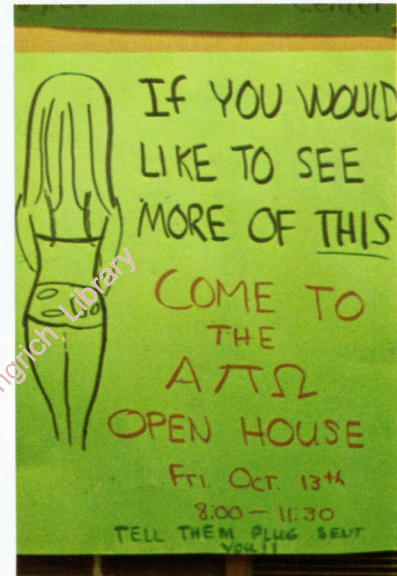 If YOU WOULD
LIKE TO SEE
MORE OF THIS
COME TO
THE
AΠΩ
OPEN HOUSE
FRI. OCT. 13th
8:00 – 11:30
TELL THEM PLUG SENT
YOU!!
ngrich Library